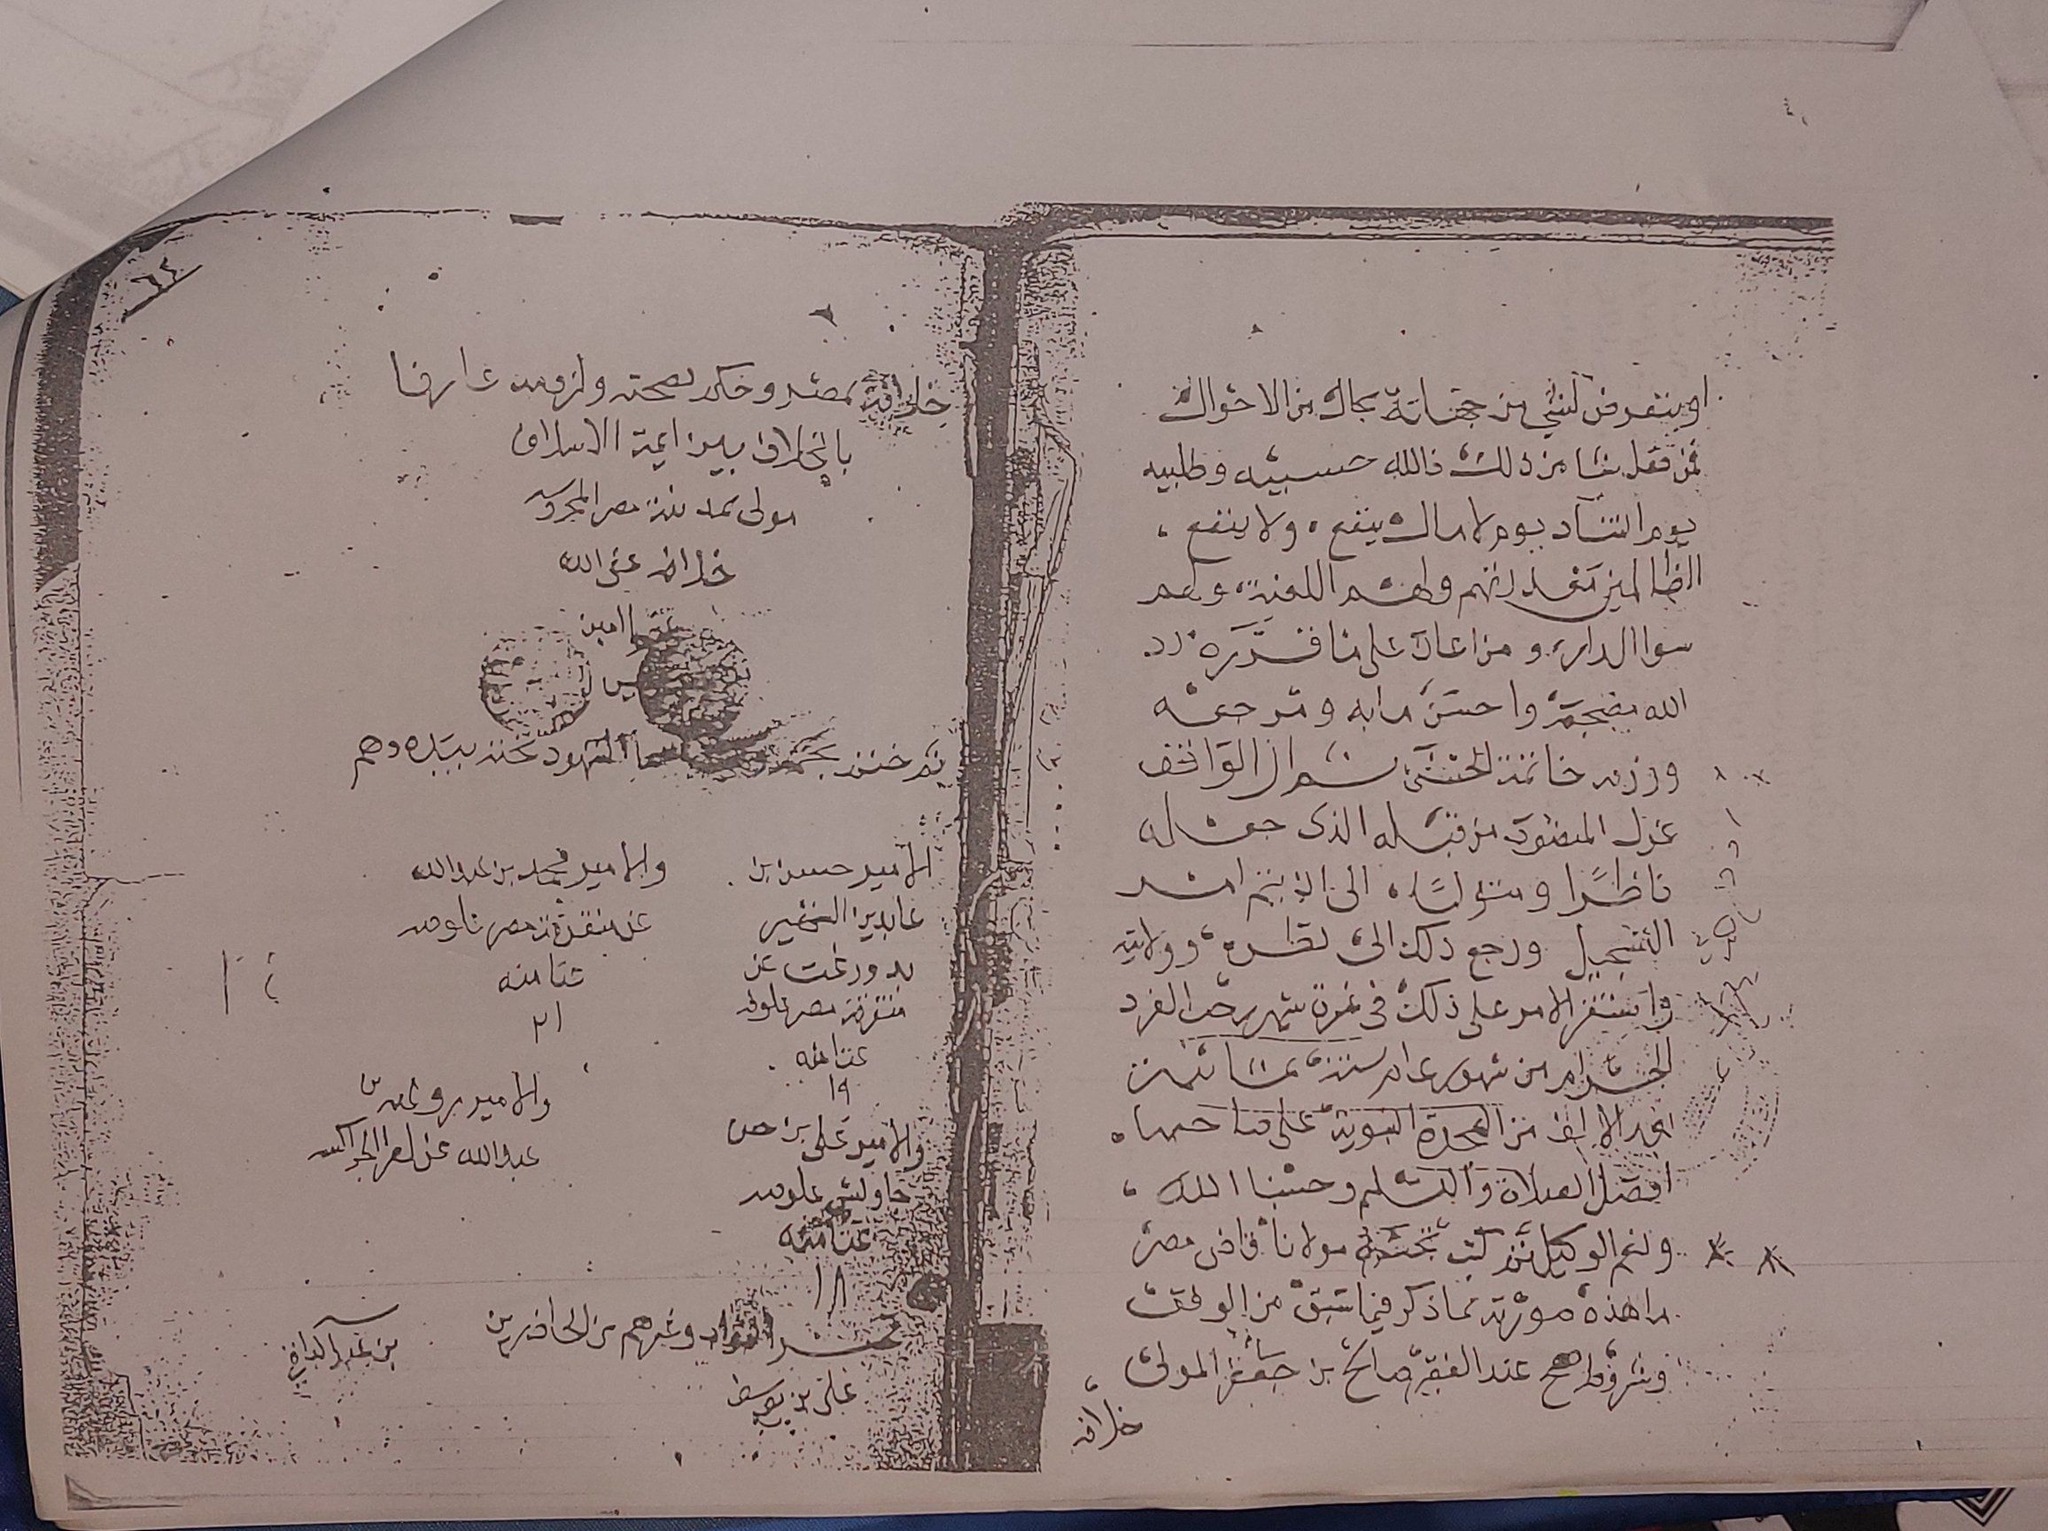 او يتعرض لشي من جهاته بحال من الاحوال
فمن فعل شيا من ذلك فالله حسيبه وطليبه
يوم التناد يوم لا مال ينفع ولا ينفع
الظالمين معذرتهم ولهم اللعنة ولهم
سوا الدار ومن اعان على ما قرره برد
الله مضجعه واحسن مابه ومرجعه
ورزقه خاتمة الحسنى ثم ان الواقف
عزل المنصوب من قبله الذى جعله
ناظرا ومتوليا الى ان يتم امر
التسجيل ورجع ذلك الى نظره وولايته
واستقر الامر على ذلك فى غرة شهر رجب الفرد
الحرام من شهور عام سنة ثمانين
بعد الالف من الهجرة النبوية على صاحبها
افضل الصلاة والسلم وحسبنا الله
ونعم الوكيل كتب مولانا قاضى مصر
ما هذه صورته ما ذكر فيما سبق من الوقف
وشروطه صح عند الفقير صالح بن المولى
خلافه
٦٤
خلافة بمصر وحكم بصحته ولزومه عارفا
بالخلاف بين ايمة الاسلام
مولى بمدينة مصر المحروسة
خلافة عفى الله
عنه امين
الشهود تحته بيده وهم
الامير حسن بن
عابدين الشهير
عن
متفرقة مصر علوفه
عثامنه
١٩
والامير محمد بن عبد الله
عن متفرقة مصر علوفه
عثامنه
٢١
والامير على بن حسن
جاوليش علوفه
عثامنه
١٨
والامير بن
عبد الله عن الجراكسه
وغيرهم من الحاضرين
على بن يوسف